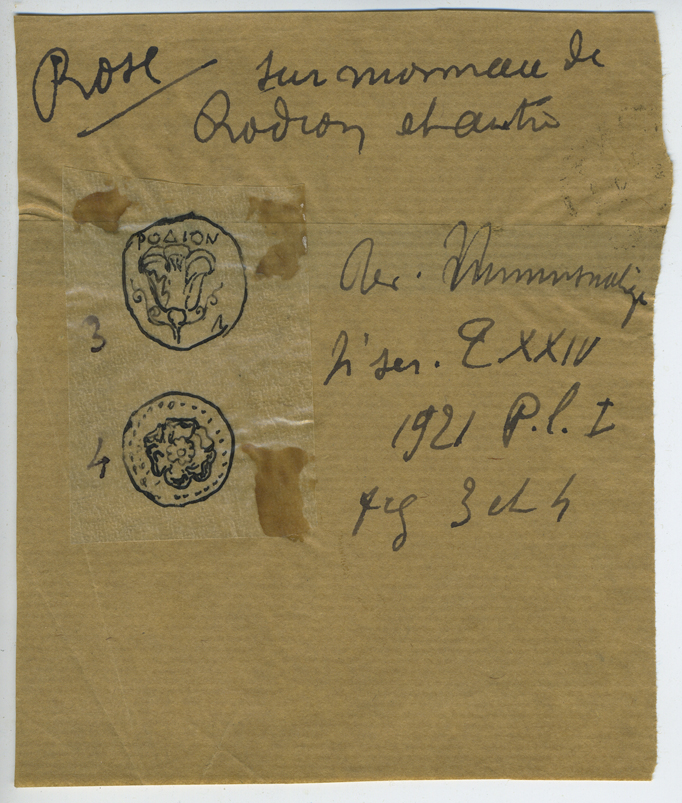 Rose
sur monnaie de
Rodion et autre
ΡΟΔΙΟΝ
3
4
Rev. Numismatique
4' ser. T XXIV
1921 P.l. I
fig 3 et 4